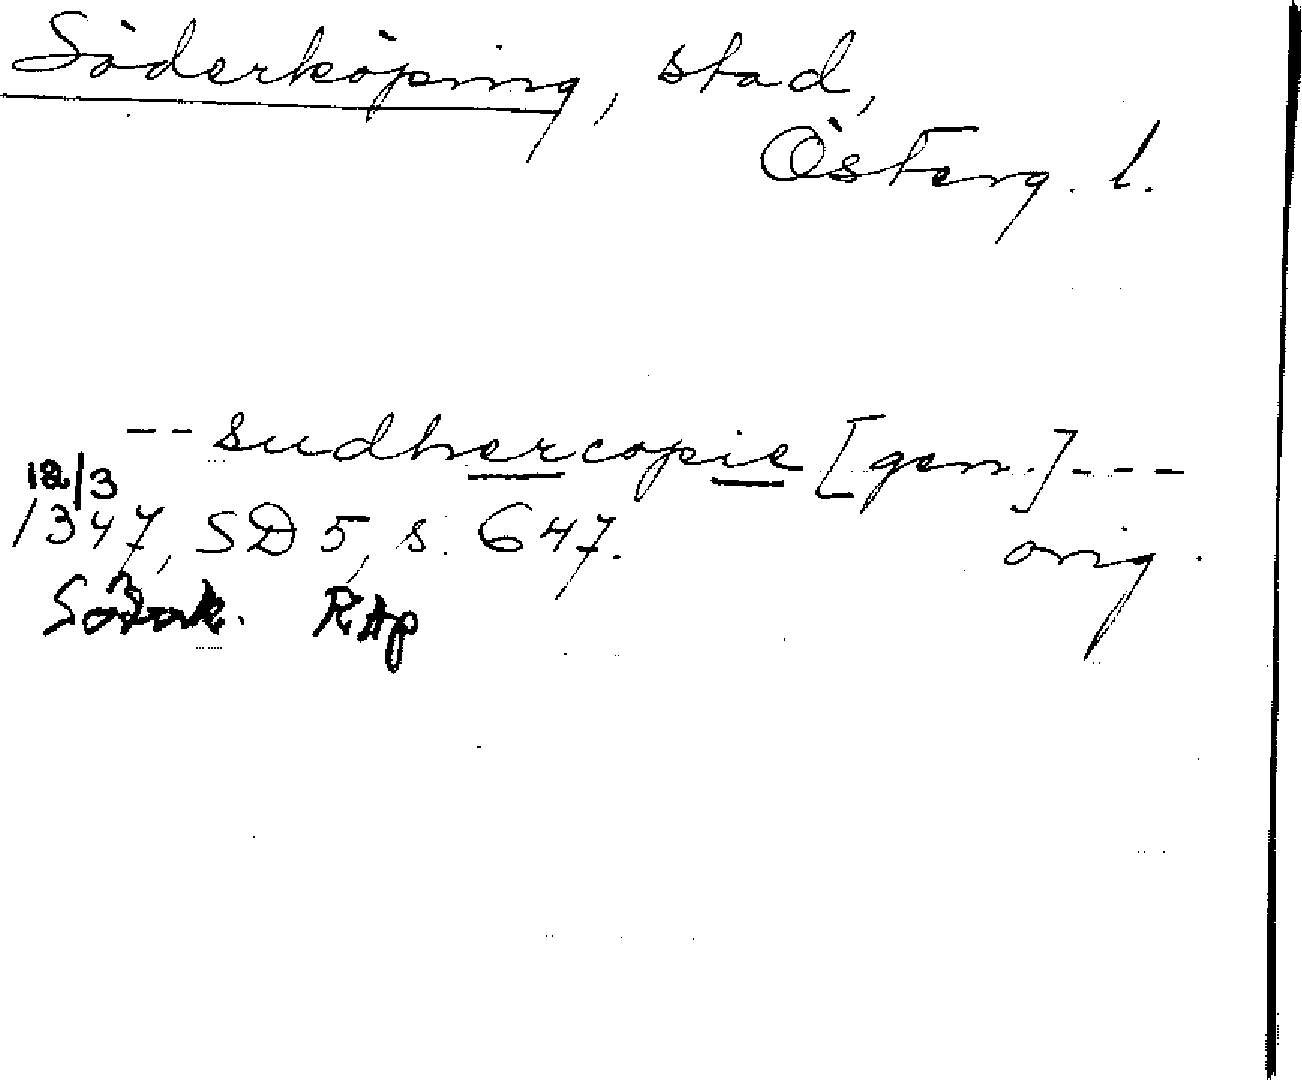 Söderköping, stad,
Österg. l.
-- sudhercopie [gen.] ---
12/3
1347, SD 5, s. 647. orig.
Söderk. RAp